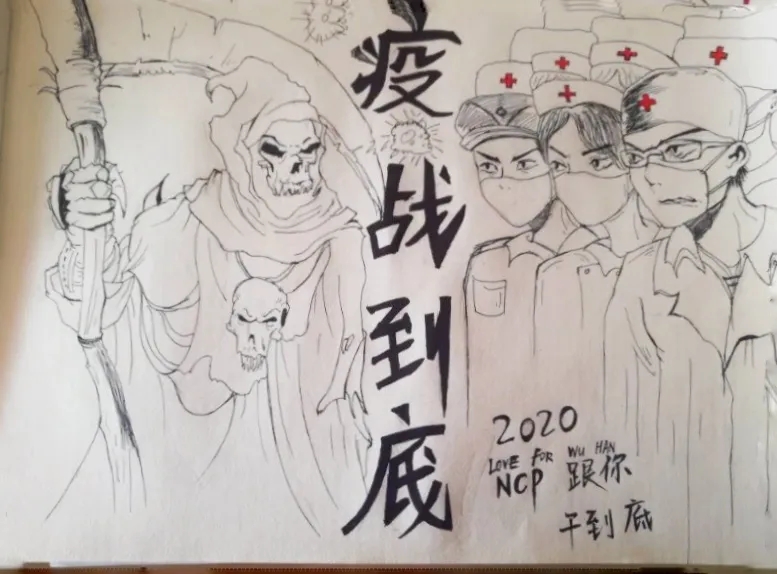 疫战到底
2020
LOVE FOR WU HAN
NCP 跟你
干到底